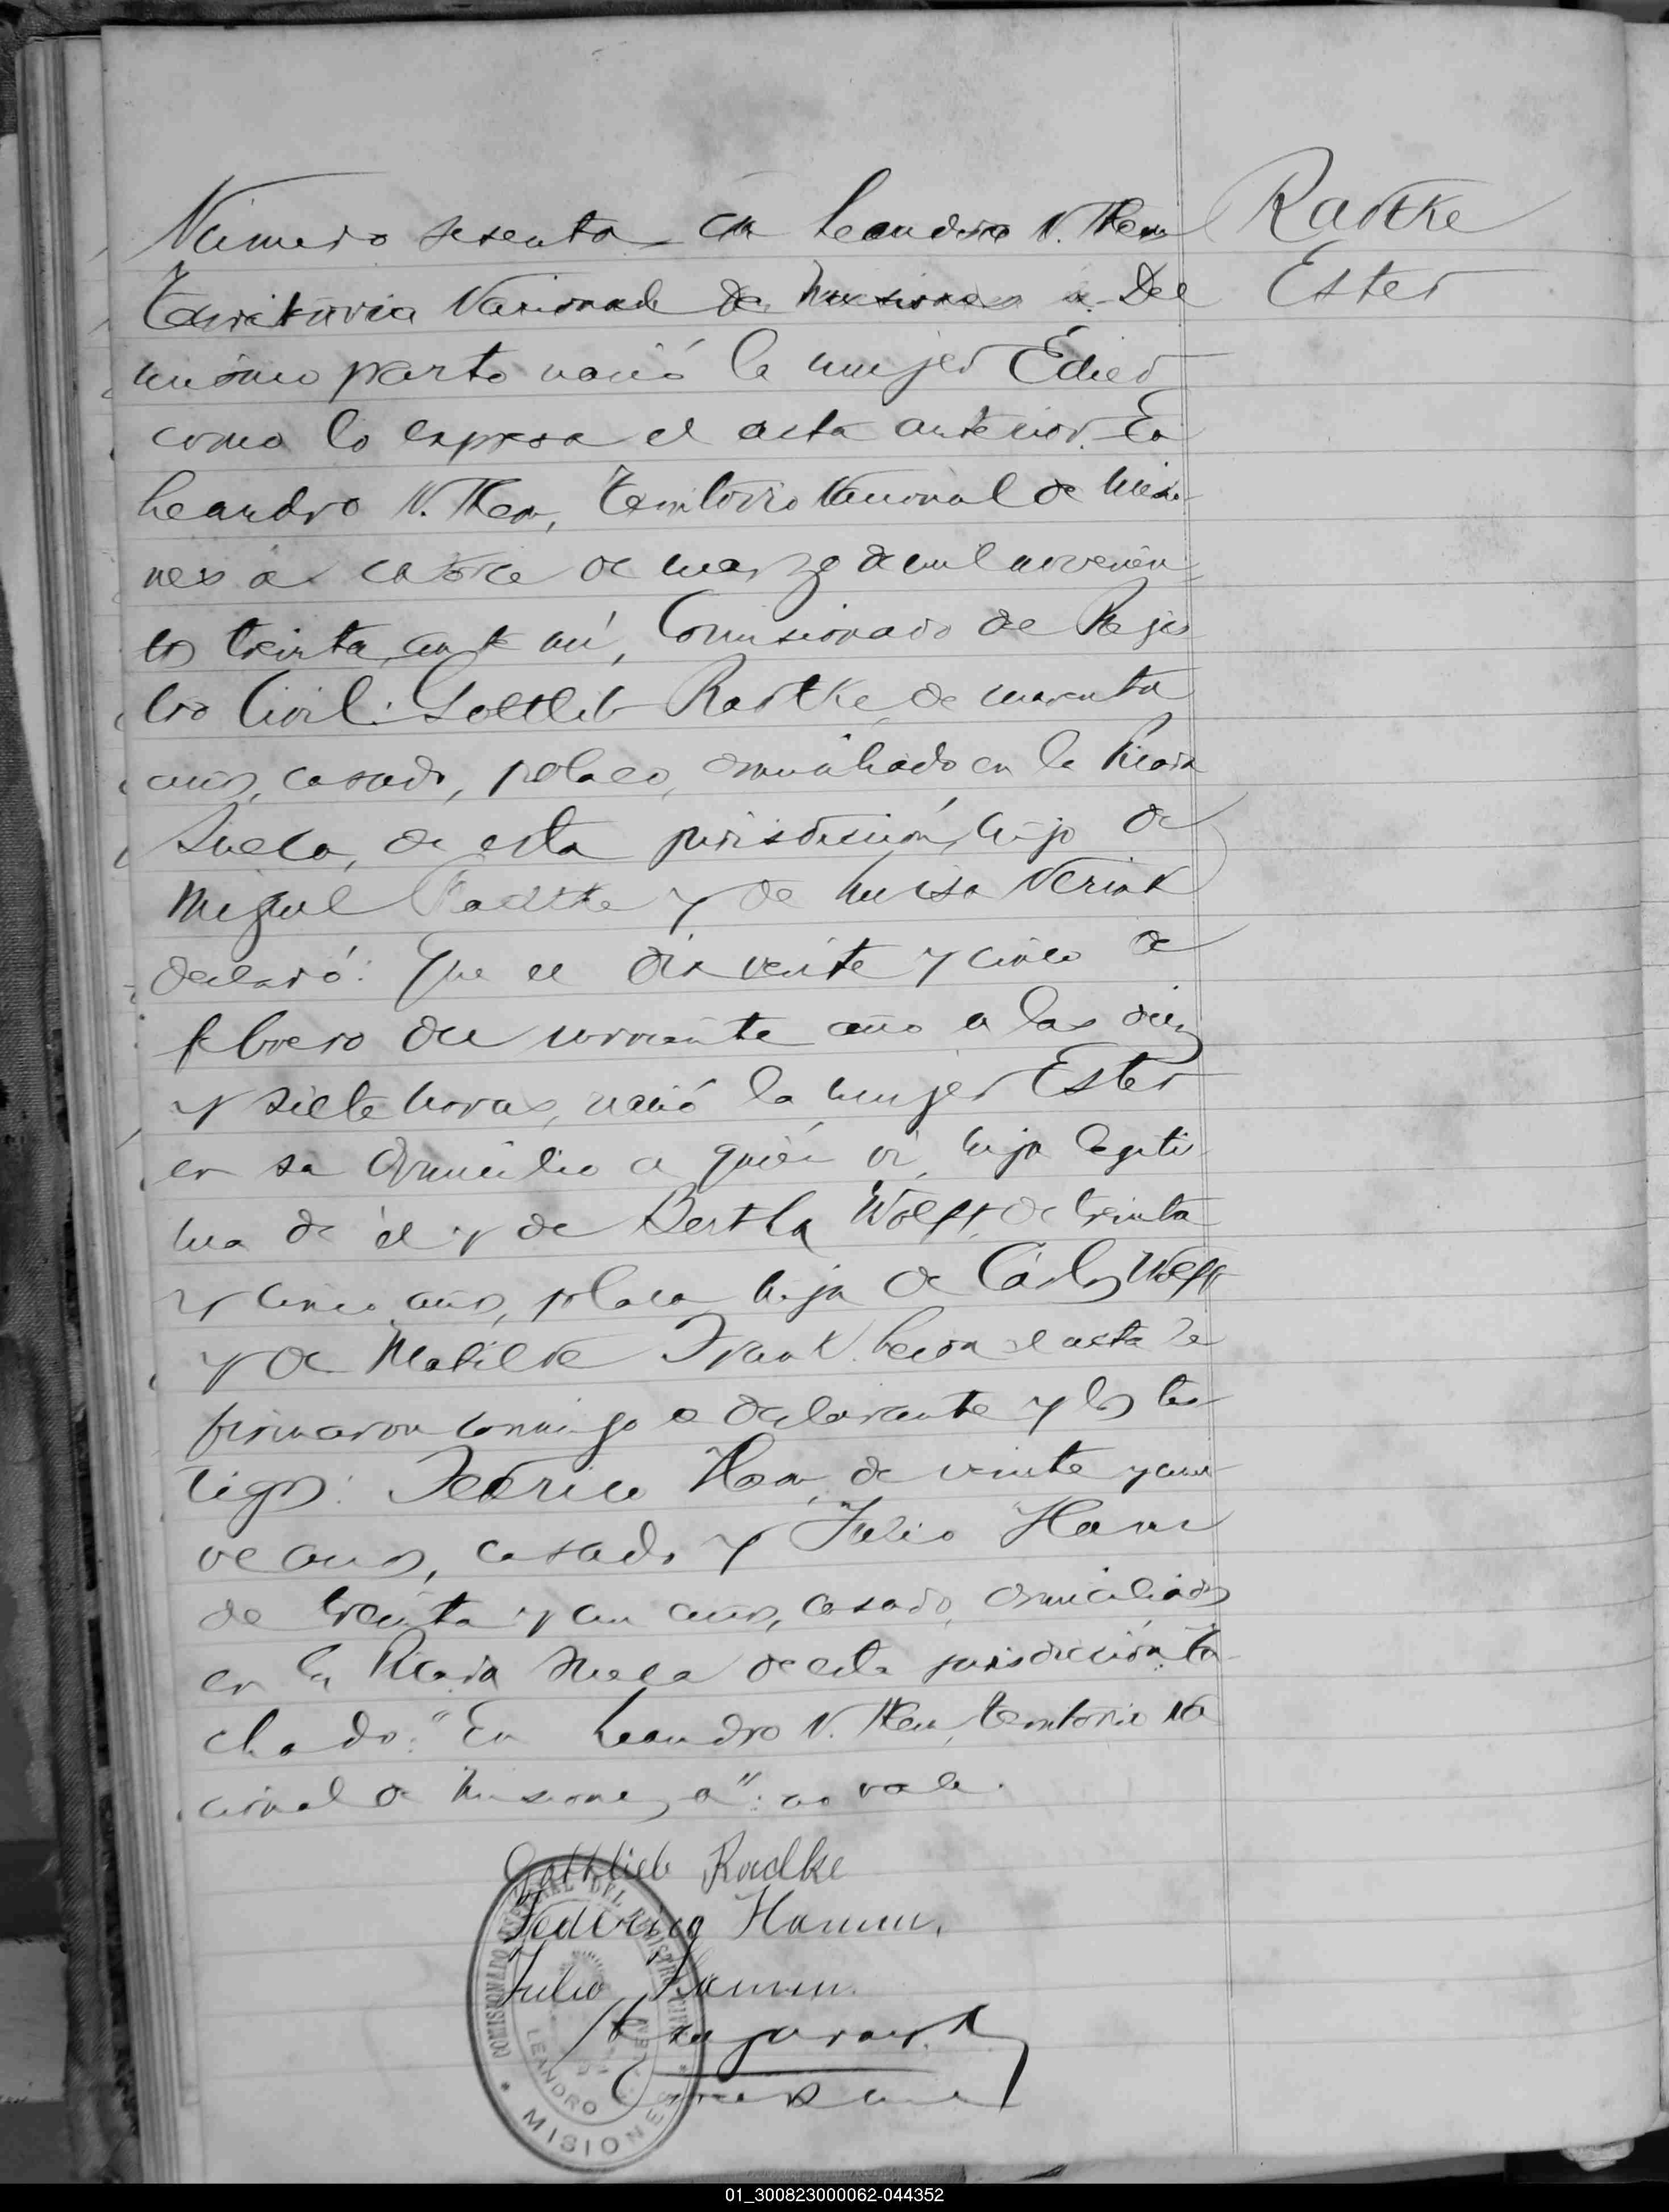 Número sesenta - En Leandro N. Alem
Radtke
Territorio Nacional de Misiones a. Del
Ester
mismo parto nació la mujer Edied
como lo expresa el acta anterior. En
Leandro N. Alem, Territorio Nacional de Misio-
nes a catorce de marzo de mil novecien-
tos treinta, ante mí, Comisionado de Regis
tro Civil: Gottlieb Radtke, de cuarenta
años, casado, polaco, domiciliado en la Picada
Sueca, de esta jurisdicción, hijo de
Miguel Radtke y de Luisa
declaró: Que el día veinte y cinco de
febrero del corriente año a las diez
y siete horas, nació la mujer Ester
en su domicilio a quién vi, hija legíti-
ma de él y de Bertha Wolff, de treinta
y cinco años, polaca hija de Cárlos Wolff
y de Matilde Frank. Leida el acta la
firmaron conmigo el declarante y los tes-
tigos: Federico Ham, de veinte y nue-
ve años, casado y Julio Ham
de treinta y un años, casado, domiciliados
en la Picada Sueca de esta jurisdicción. Ta-
chado: "En Leandro N. Alem, territorio Na
cional de Misiones, a": no vale.
Gottlieb Radke
Federico Hamm.
Julio Hamm.
COMISIONADO ESPECIAL DEL REGISTRO CIVIL
LEANDRO N. ALEM
* MISIONES *
01_300823000062-044352